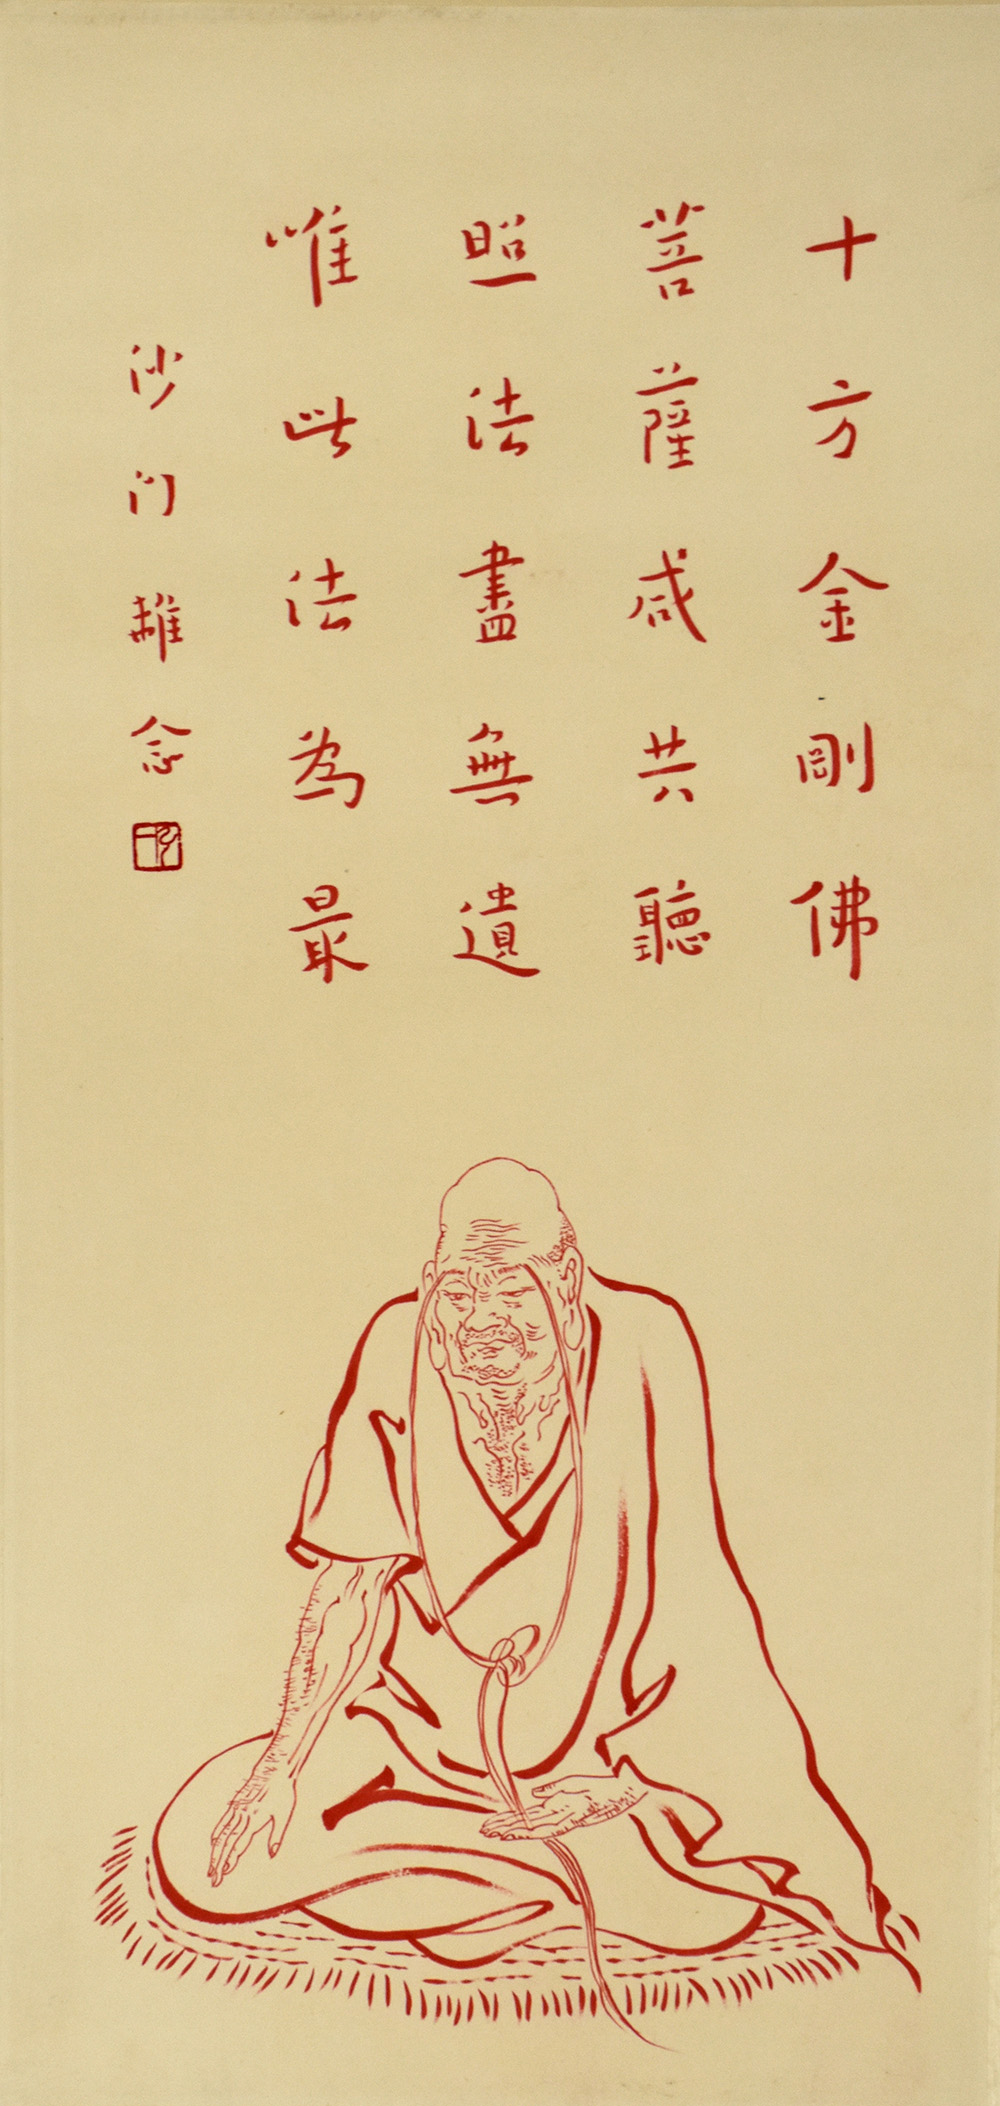 十方金剛佛
菩薩咸共聽
照法盡無遺
唯此法為最
沙门念